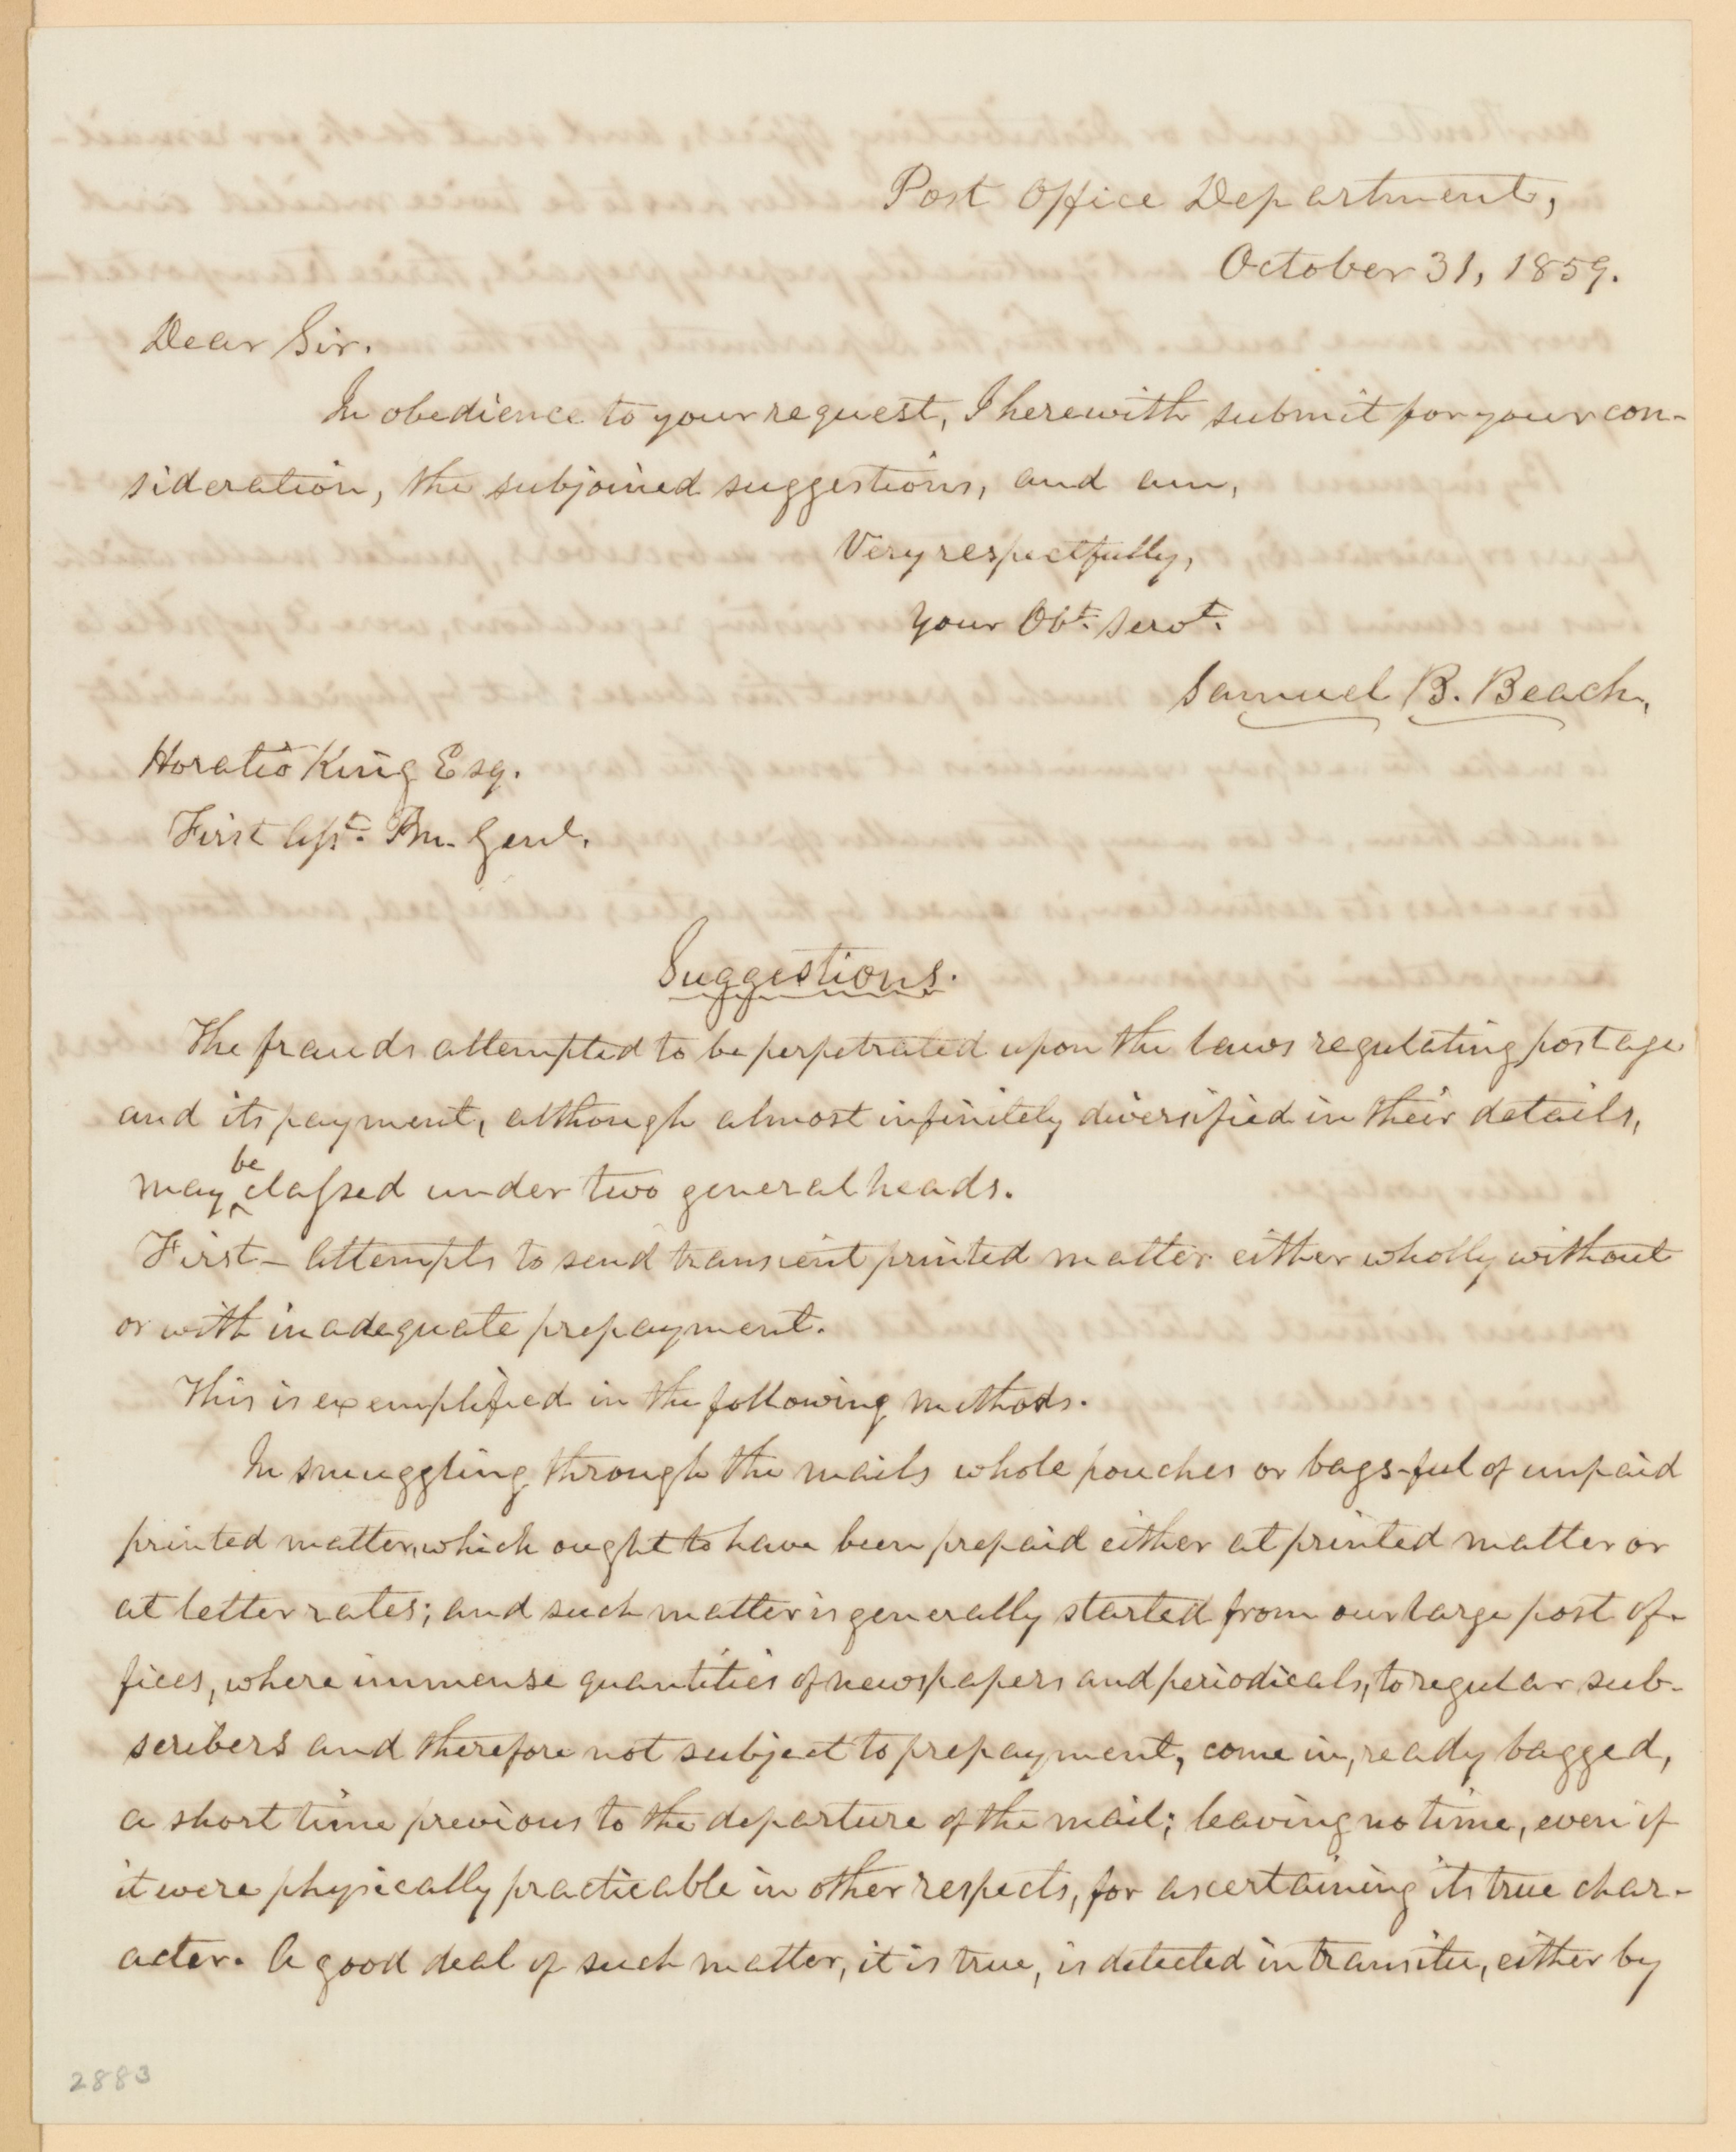 Post Office Department,
October 31, 1859.
Dear Sir.
In obedience to your request, I herewith submit for your con-
sideration, the subjoined suggestions, and am,
Very respectfully,
Your Obt. Servt.
Samuel B. Beach,
Horatio King Esq.
First Asst. Pm. Genl.
Suggestions.
The frauds attempted to be perpetrated upon the laws regulating postage
and its payment, although almost infinitely diversified in their details,
may be classed under two general heads.
First - Attempts to send transient printed matter either wholly without
or with inadequate prepayment.
This is exemplified in the following methods.
In smuggling through the mails whole pouches or bags-ful of unpaid
printed matter, which ought to have been prepaid either at printed matter or
at letter rates; and such matter is generally started from our large post of-
fices, where immense quantities of newspapers and periodicals, to regular sub-
scribers and therefore not subject to prepayment, come in, ready bagged,
a short time previous to the departure of the mail; leaving no time, even if
it were physically practicable in other respects, for ascertaining its true char-
acter. A good deal of such matter, it is true, is detected in transitu, either by
2883